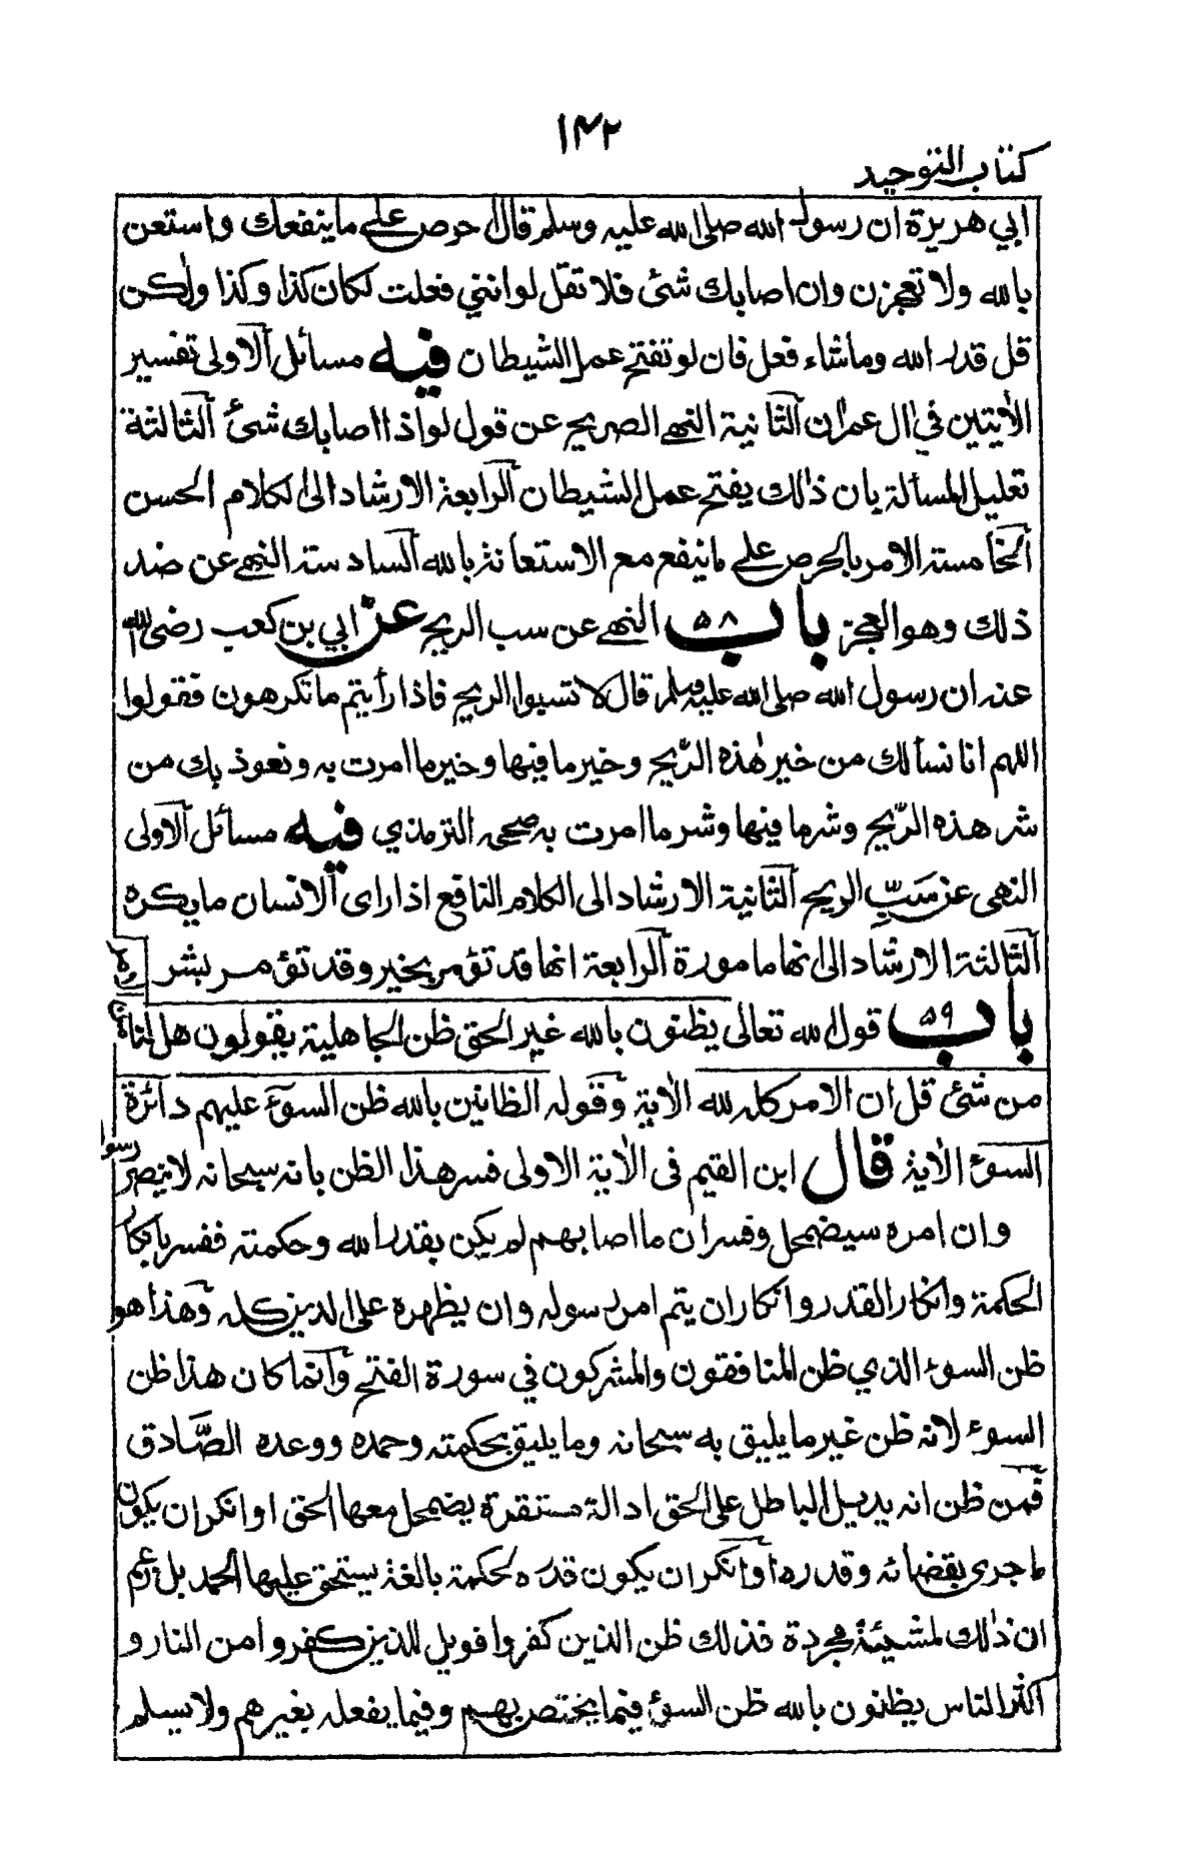 ۱۴۲
كتاب التوحيد
ابي هريرة ان رسول الله صلى الله عليه وسلم قال احرص على ما ينفعك واستعن
بالله ولا تعجزن وان اصابك شئ فلا تقل لو انني فعلت لكان كذا وكذا ولكن
قل قدر الله وما شاء فعل فان لو تفتح عمل الشيطان فيه مسائل الاولى تفسير
الآيتين في ال عمران الثانية النهي الصريح عن قول لو اذا اصابك شئ الثالثة
تعليل المسألة بان ذلك يفتح عمل الشيطان الرابعة الارشاد الى الكلام الحسن
الخامسة الامر بالحرص على ما ينفع مع الاستعانة بالله السادسة النهي عن ضد
ذلك وهو العجز باب ۵۸ النهي عن سب الريح عن ابي بن كعب رضي الله
عنه ان رسول الله صلى الله عليه وسلم قال لا تسبوا الريح فاذا رأيتم ما تكرهون فقولوا
اللهم انا نسألك من خير هذه الريح وخير ما فيها وخير ما امرت به ونعوذ بك من
شر هذه الريح وشر ما فيها وشر ما امرت به صححه الترمذي فيه مسائل الاولى
النهى عن سَبِّ الريح الثانية الارشاد الى الكلام النافع اذا راى الانسان ما يكره
الثالثة الارشاد الى انها مامورة الرابعة انها قد تؤمر بخير وقد تؤمر بشر
باب ۵۹ قول الله تعالى يظنون بالله غير الحق ظن الجاهلية يقولون هل لنا
من شئ قل ان الامر كله لله الآية وقوله الظانين بالله ظن السوء عليهم دائرة
السوء الآية قال ابن القيم فى الآية الاولى فسر هذا الظن بانه سبحانه لا ينصر رسوله
وان امره سيضمحل وفسر ان ما اصابهم لم يكن بقدر الله وحكمته ففسر بانكار
الحكمة وانكار القدر وانكار ان يتم امر رسوله وان يظهره على الدين كله وهذا هو
ظن السوء الذي ظن المنافقون والمشركون في سورة الفتح وانما كان هذا ظن
السوء لانه ظن غير ما يليق به سبحانه وما يليق بحكمته وحمده ووعده الصَّادق
فمن ظن انه يديل الباطل على الحق ادالة مستقرة يضمحل معها الحق او انكر ان يكون
ما جرى بقضائه وقدره او انكر ان يكون قدره لحكمة بالغة يستحق عليها الحمد بل زعم
ان ذلك لمشيئة مجردة فذلك ظن الذين كفروا فويل للذين كفروا من النار و
اكثر الناس يظنون بالله ظن السوء فيما يختص بهم وفيما يفعله بغيرهم ولا يسلم